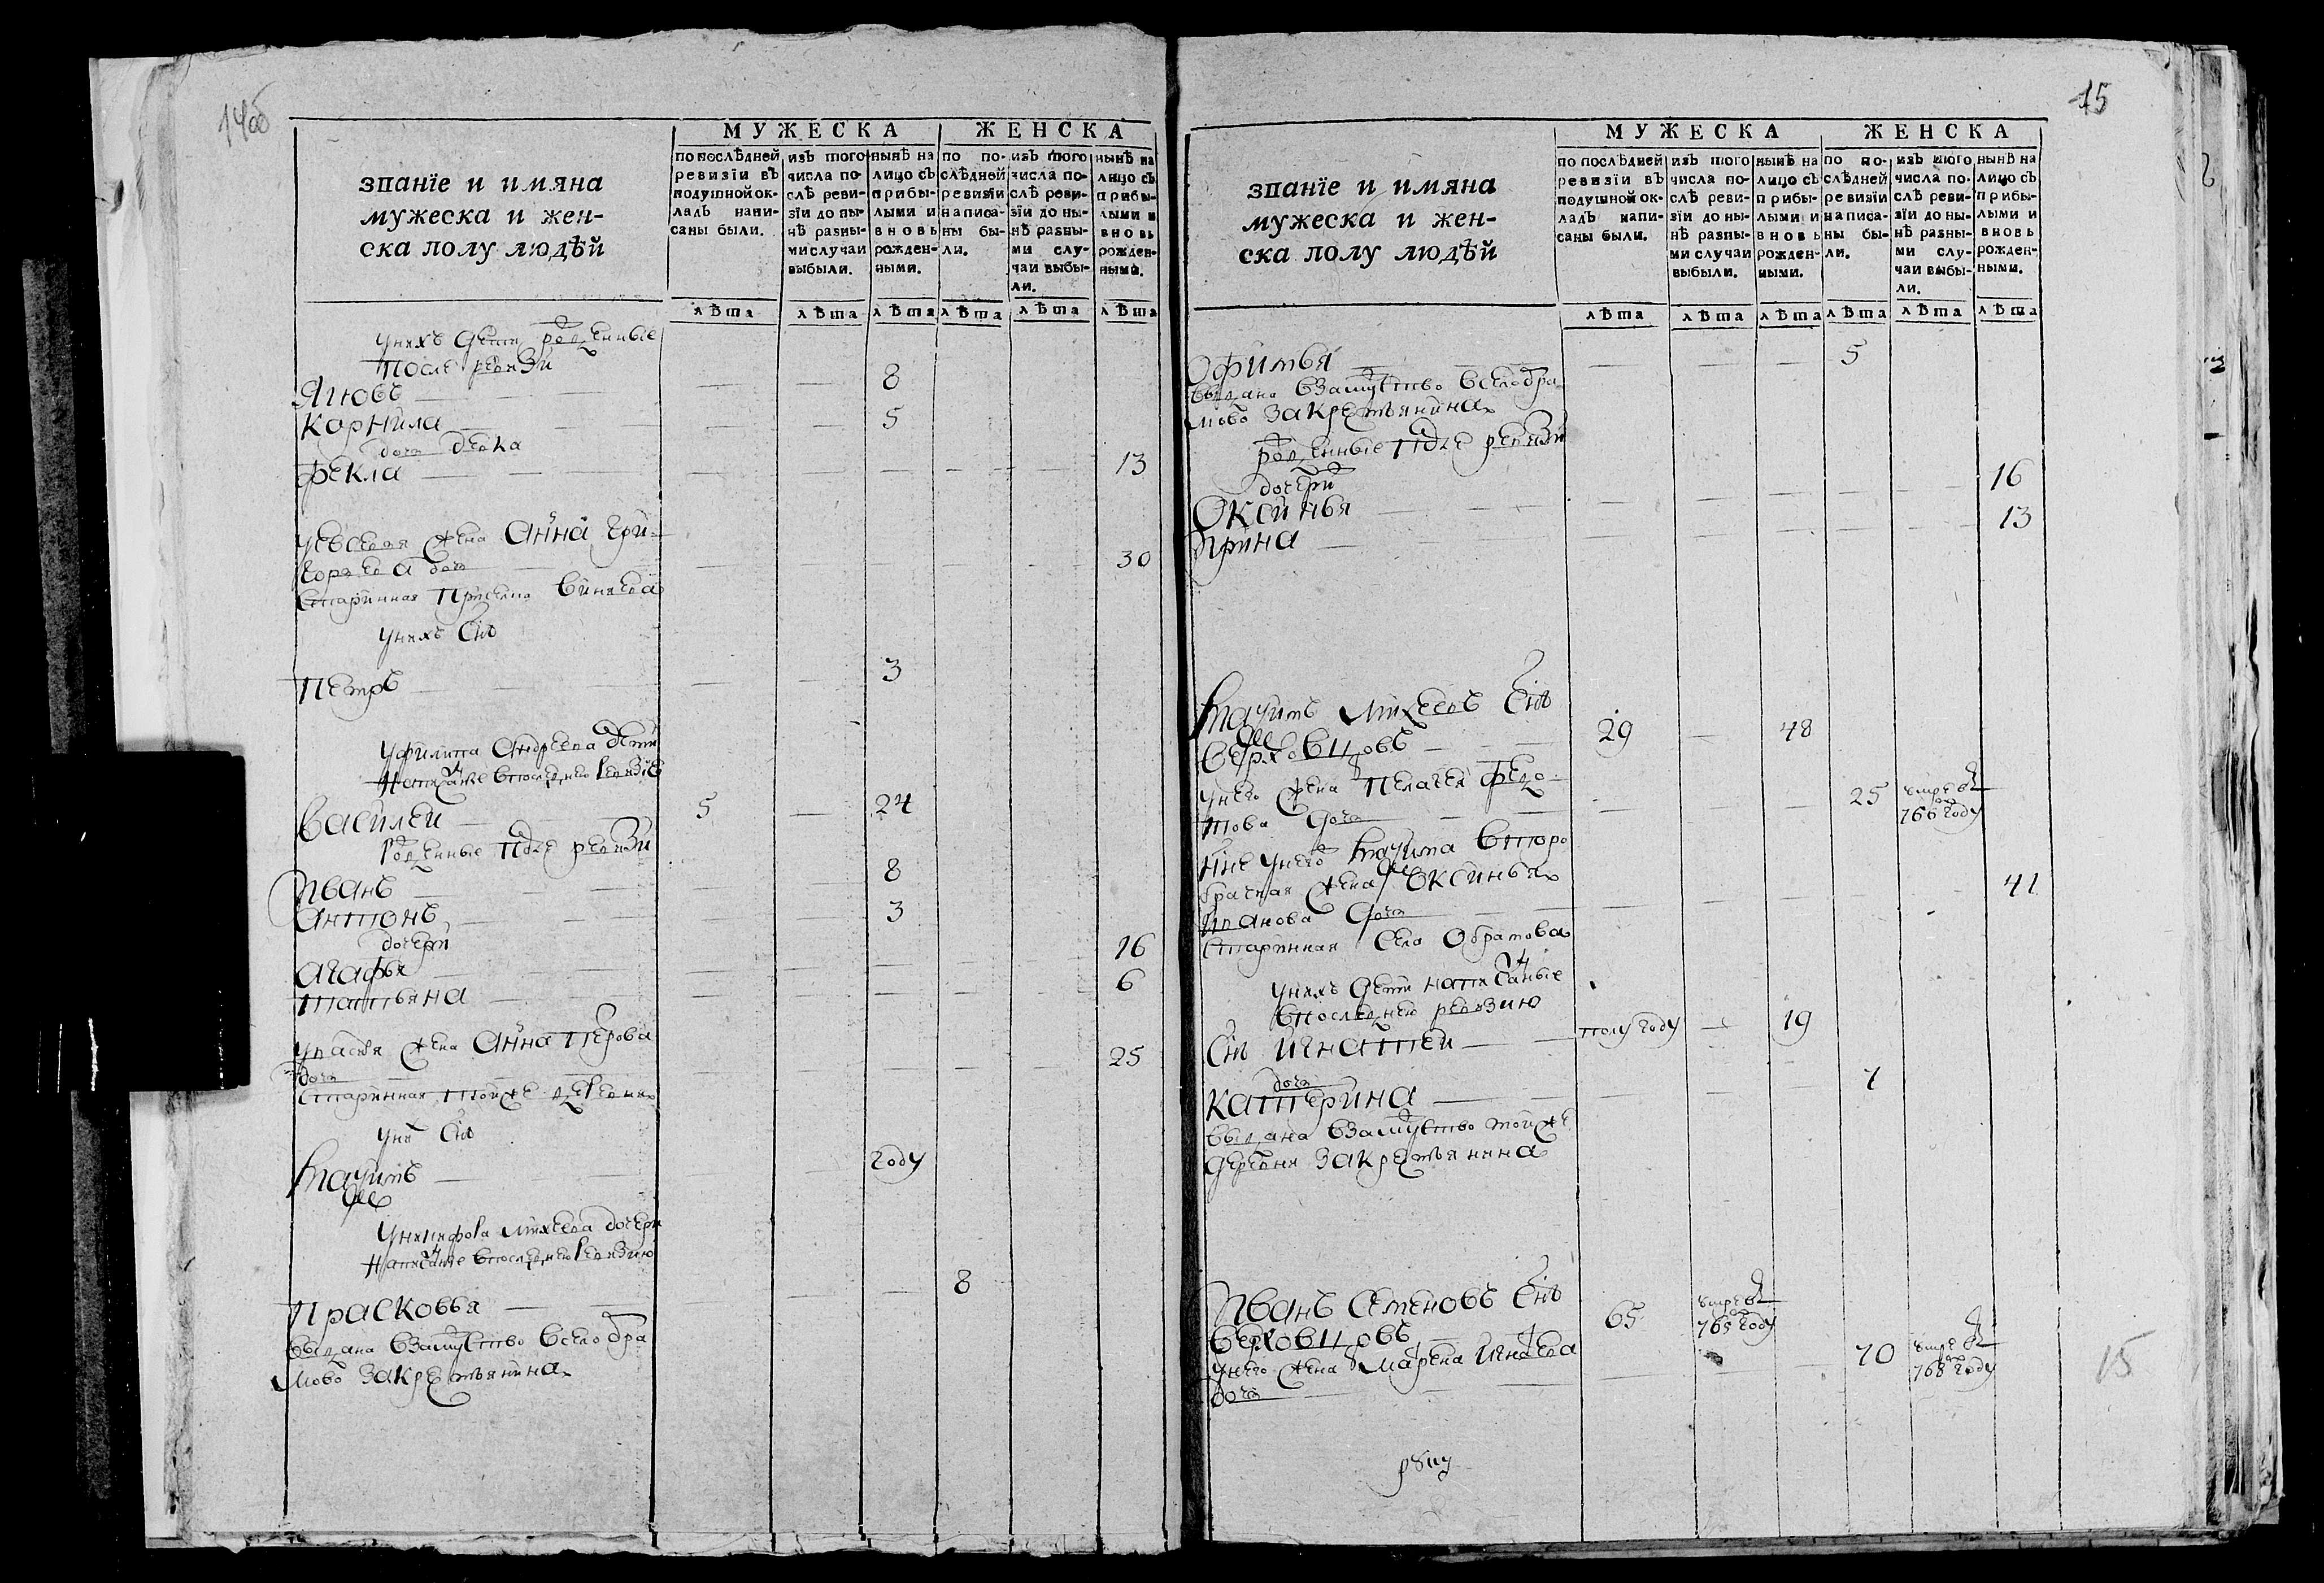 14об
МУЖЕСКА ЖЕНСКА
званїе и имяна
мужеска и жен-
ска полу людѣй
по послѣдней
ревизїи въ
подушной ок-
ладъ напи-
саны были.
изъ того
числа по-
слѣ реви-
зїи до ны-
нѣ разны-
ми случаи
выбыли.
нынѣ на
лицо съ
прибы-
лыми и
вновь
рожден-
ными.
по по-
слѣдней
ревизїи
написа-
ны бы-
ли.
изъ того
числа по-
слѣ реви-
зїи до ны-
нѣ разны-
ми слу-
чаи выбы-
ли.
нынѣ на
лицо съ
прибы-
лыми и
вновь
рожден-
ными.
лѣта лѣта лѣта лѣта лѣта лѣта
у них дети рожденные
после ревизи
Яковъ 8
Корнила 5
дочь девка
Фекла 13
жена Анна Гри-
горьева дочь 30
старинная
у них снъ
Петръ 3
у Филипа Андреева дети
написанные в последнею ревизие
Василеи 5 24
рожденные после ревизи
Иванъ 8
Антонъ 3
дочери
Агафья 16
Татьяна 6
у Васиья жена Анна Петрова
дочь 25
старинная тои же деревни
у них снъ
году
у Никифора Михеева дочери
написанные в последнею ревизию
Прасковья 8
выдана в замужство в село Обра
мово за крестьянина
15
МУЖЕСКА ЖЕНСКА
званїе и имяна
мужеска и жен-
ска полу людѣй
по послѣдней
ревизїи въ
подушной ок-
ладъ напи-
саны были.
изъ того
числа по-
слѣ реви-
зїи до ны-
нѣ разны-
ми случаи
выбыли.
нынѣ на
лицо съ
прибы-
лыми и
вновь
рожден-
ными.
по по-
слѣдней
ревизїи
написа-
ны бы-
ли.
изъ того
числа по-
слѣ реви-
зїи до ны-
нѣ разны-
ми слу-
чаи выбы-
ли.
нынѣ на
лицо съ
прибы-
лыми и
вновь
рожден-
ными.
лѣта лѣта лѣта лѣта лѣта лѣта
Офимья 5
выдана в замужство в село Обра
мово за крестьянина
рожденные после ревизи
дочери
Оксинья 16
Ирина 13
Михеевъ снъ
Верховцовъ 29 48
у него жена Пелагея Федо
това дочь 25 умре в 766 году
ныне у него второ
брачная жена Оксинья
Иванова дочь 41
старинная села Обрамова
у них дети написаные
в последнею ревизию
снъ Игнатеи полугоду 19
дочь
Катерина 1
выдана в замужство тои же
деревни за крестьянина
Иванъ Семеновъ снъ
Верховцовъ 65 умре в 765 году
у него жена Марена Игнаева
дочь 70 умре в 768 году
15